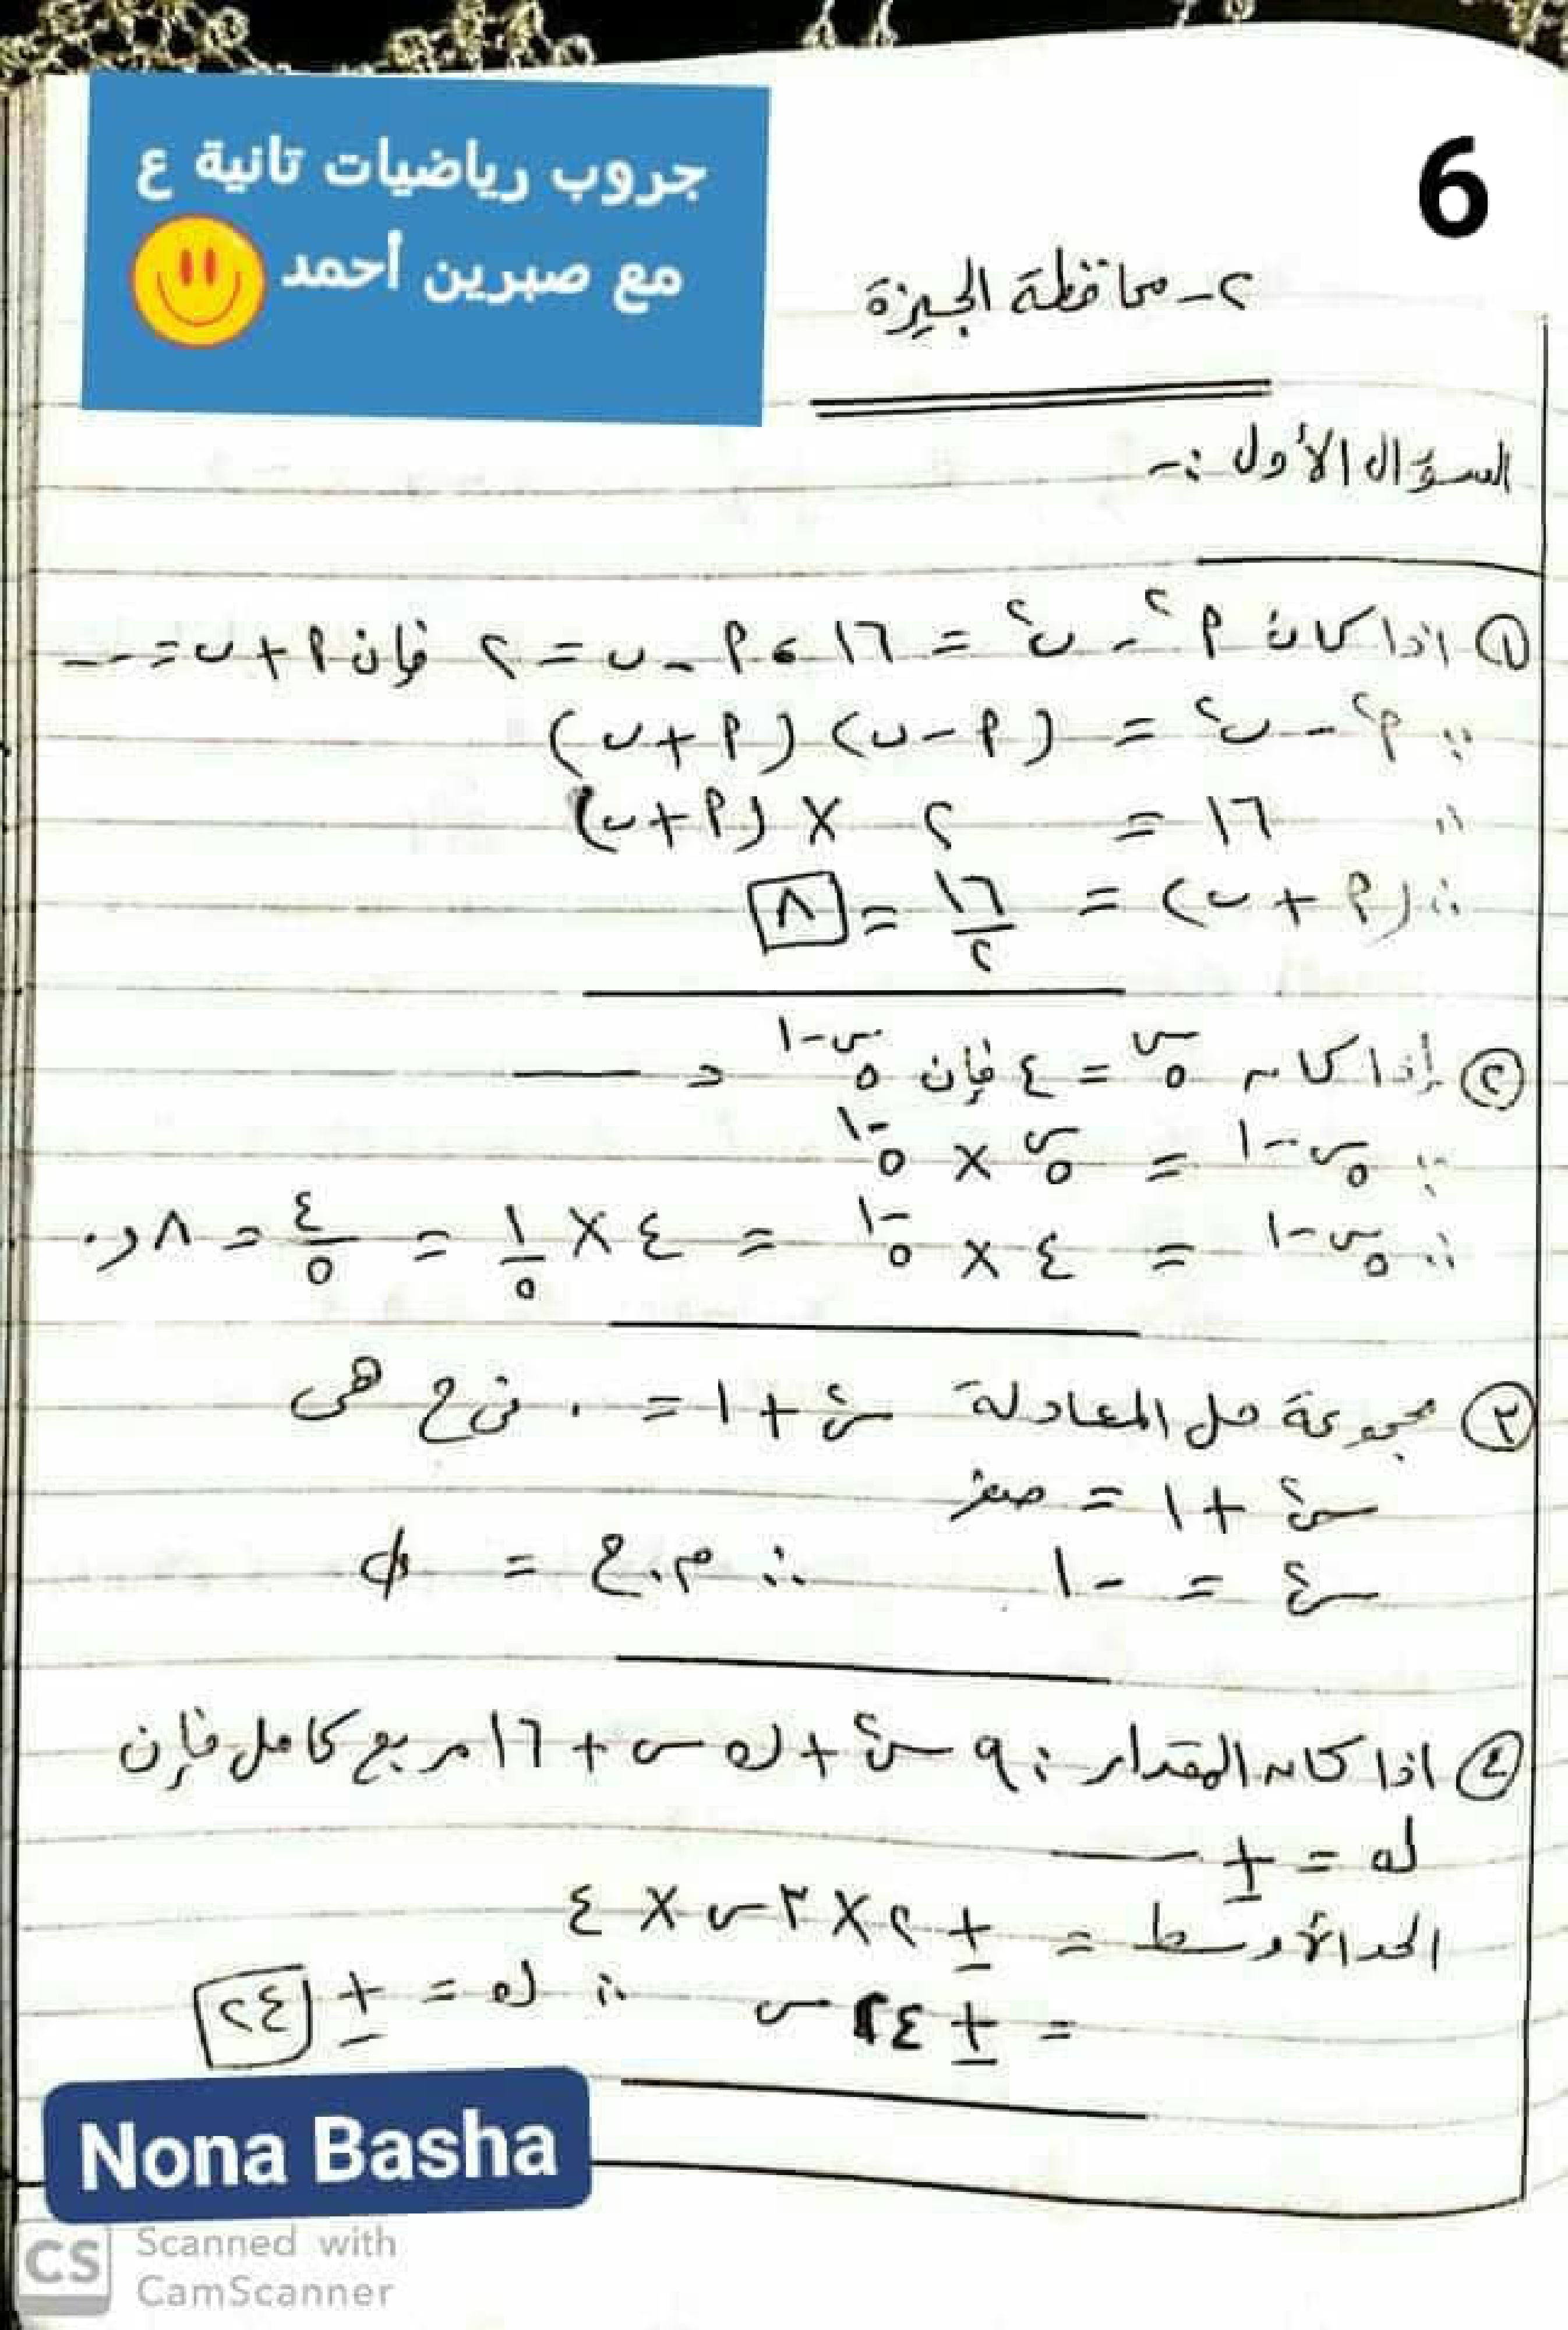 جروب رياضيات تانية ع
مع صبرين أحمد
6
٢- محافظة الجيزة
السؤال الأول :-
① اذا كان ٢م - ٢ب = ١٦ ، م - ب = ٢ فإن م + ب = ---
∵ م² - ب² = (م - ب) (م + ب)
∴ ١٦ = ٢ × (م + ب)
∴ (م + ب) = ١٦/٢ = ٨
② إذا كان ٥^س = ٤ فإن ٥^(س-١) = ——
∵ ٥^(س-١) = ٥^س × ٥^-١
∴ ٥^(س-١) = ٤ × ٥^-١ = ٤ × ١/٥ = ٤/٥ = ٨و٠
③ مجموعة حل المعادلة س² + ١ = ٠ في ح هى
س² + ١ = صفر
س² = -١ ∴ م.ح = φ
④ اذا كان المقدار : ٩س² + ك س + ١٦ مربع كامل فإن
ك = ± ——
الحد الأوسط = ± ٢ × ٣س × ٤
= ± ٢٤ س ∴ ك = ± ٢٤
Nona Basha
CS Scanned with
CamScanner